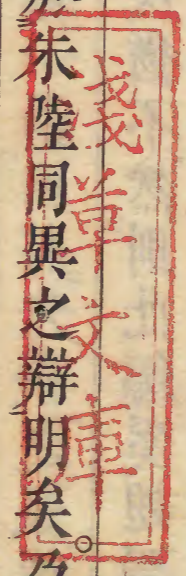 朱陸同異之辯明矣乃
淺草文庫